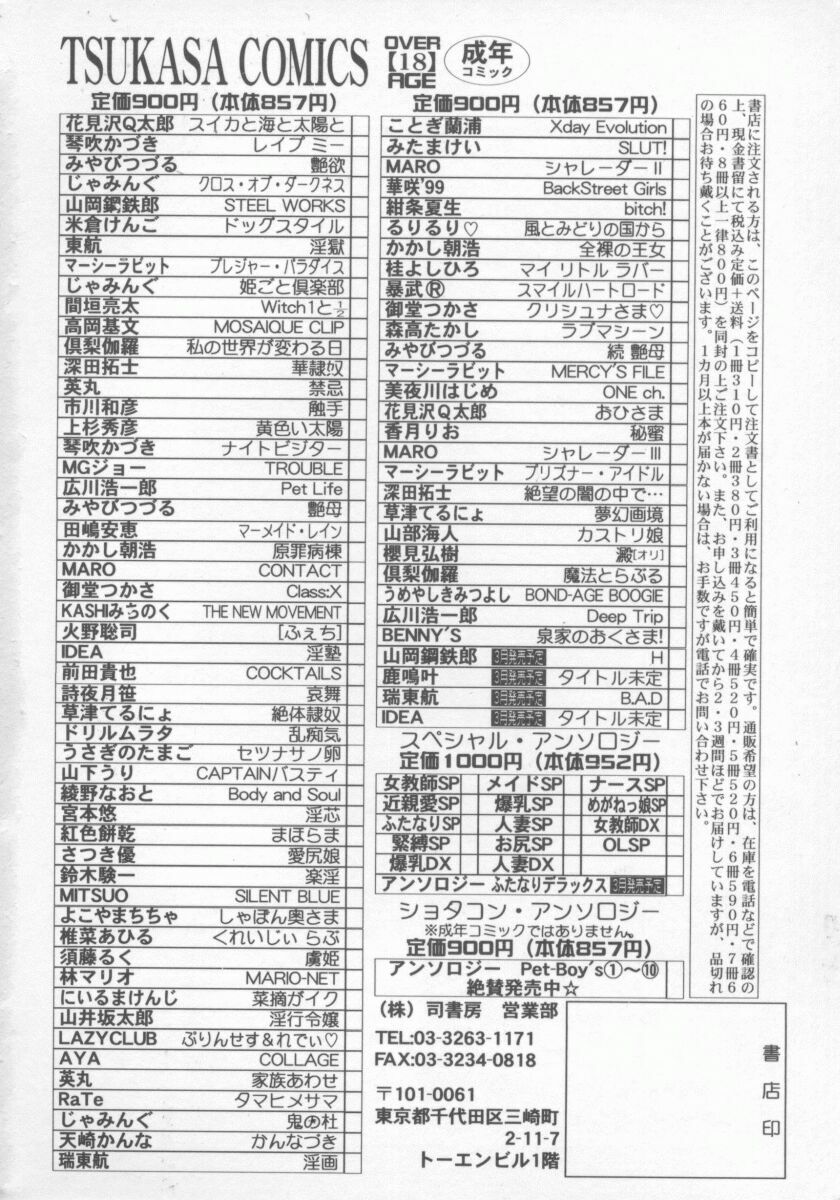 TSUKASA COMICS
OVER
【18】
AGE
成年
コミック
定価900円（本体857円）
花見沢Q太郎 スイカと海と太陽と
琴吹かづき レイプ ミー
みやびつづる 艶欲
じゃみんぐ クロス・オブ・ダークネス
山岡鋼鉄郎 STEEL WORKS
米倉けんご ドッグスタイル
東航 淫獄
マーシーラビット プレジャー・パラダイス
じゃみんぐ 姫ごと倶楽部
間垣亮太 Witch1と½
高岡基文 MOSAIQUE CLIP
倶梨伽羅 私の世界が変わる日
深田拓士 華隷奴
英丸 禁忌
市川和彦 触手
上杉秀彦 黄色い太陽
琴吹かづき ナイトビジター
MGジョー TROUBLE
広川浩一郎 Pet Life
みやびつづる 艶母
田嶋安恵 マーメイド・レイン
かかし朝浩 原罪病棟
MARO CONTACT
御堂つかさ Class:X
KASHIみちのく THE NEW MOVEMENT
火野聡司 [ふぇち]
IDEA 淫塾
前田貴也 COCKTAILS
詩夜月笹 哀舞
草津てるにょ 絶体隷奴
ドリルムラタ 乱痴気
うさぎのたまご セツナサノ卵
山下うり CAPTAINバスティ
綾野なおと Body and Soul
宮本悠 淫芯
紅色餅乾 まほらま
さつき優 愛尻娘
鈴木駿一 楽淫
MITSUO SILENT BLUE
よこやまちちゃ しゃぼん奥さま
椎菜あひる くれいじぃ らぶ
須藤るく 虜姫
林マリオ MARIO-NET
にいるまけんじ 菜摘がイク
山井坂太郎 淫行令嬢
LAZYCLUB ぷりんせす&れでぃ♡
AYA COLLAGE
英丸 家族あわせ
RaTe タマヒメサマ
じゃみんぐ 鬼の杜
天崎かんな かんなづき
瑞東航 淫画
定価900円（本体857円）
ことぎ蘭浦 Xday Evolution
みたまけい SLUT!
MARO シャレーダーⅡ
華咲'99 BackStreet Girls
紺条夏生 bitch!
るりるり♡ 風とみどりの国から
かかし朝浩 全裸の王女
桂よしひろ マイ リトル ラバー
暴武Ⓡ スマイルハートロード
御堂つかさ クリシュナさま♡
森高たかし ラブマシーン
みやびつづる 続 艶母
マーシーラビット MERCY'S FILE
美夜川はじめ ONE ch.
花見沢Q太郎 おひさま
香月りお 秘蜜
MARO シャレーダーⅢ
マーシーラビット プリズナー・アイドル
深田拓士 絶望の闇の中で…
草津てるにょ 夢幻画境
山部海人 カストリ娘
櫻見弘樹 澱[オリ]
倶梨伽羅 魔法とらぶる
うめやしきみつよし BOND-AGE BOOGIE
広川浩一郎 Deep Trip
BENNY'S 泉家のおくさま!
山岡鋼鉄郎 3月発売予定 H
鹿鳴叶 3月発売予定 タイトル未定
瑞東航 3月発売予定 B.A.D
IDEA 3月発売予定 タイトル未定
スペシャル・アンソロジー
定価1000円（本体952円）
女教師SP メイドSP ナースSP
近親愛SP 爆乳SP めがねっ娘SP
ふたなりSP 人妻SP 女教師DX
緊縛SP お尻SP OLSP
爆乳DX 人妻DX
アンソロジー ふたなりデラックス 3月発売予定
ショタコン・アンソロジー
※成年コミックではありません。
定価900円（本体857円）
アンソロジー Pet-Boy's①～⑩
絶賛発売中☆
（株）司書房 営業部
TEL:03-3263-1171
FAX:03-3234-0818
〒101-0061
東京都千代田区三崎町
2-11-7
トーエンビル1階
書店に注文される方は、このページをコピーして注文書としてご利用になると簡単で確実です。通販希望の方は、在庫を電話などで確認の
上、現金書留にて税込み定価＋送料（1冊310円・2冊380円・3冊450円・4冊520円・5冊520円・6冊590円・7冊6
60円・8冊以上一律800円）を同封の上ご注文下さい。また、お申し込みを戴いてから2・3週間ほどでお届けしていますが、品切れ
の場合お待ち戴くことがございます。1カ月以上本が届かない場合は、お手数ですが電話でお問い合わせ下さい。
書店印